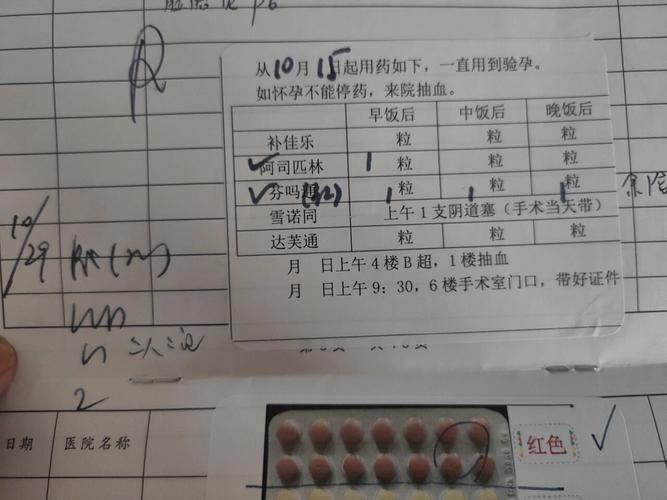 从10月15日起用药如下，一直用到验孕。
如怀孕不能停药，来院抽血。
早饭后 中饭后 晚饭后
补佳乐 粒 粒 粒
阿司匹林 1 粒 粒 粒
芬吗通 1 粒 1 粒 1 粒
雪诺同 上午1支阴道塞（手术当天带）
达芙通 粒 粒 粒
月 日上午4楼B超，1楼抽血
月 日上午9：30，6楼手术室门口，带好证件
10/29
2
日期 医院名称
红色